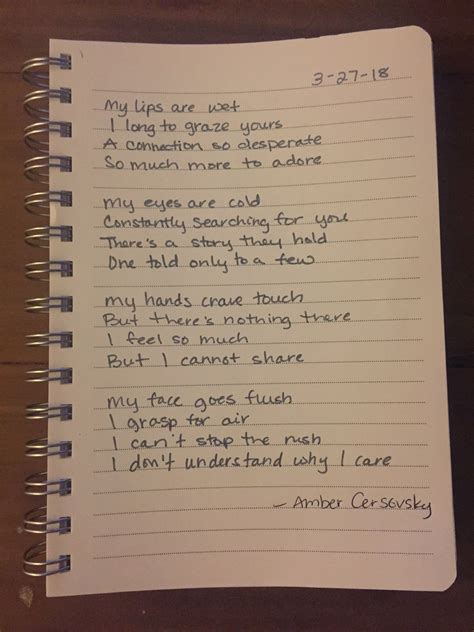 3-27-18
My lips are wet
I long to graze yours
A connection so desperate
So much more to adore
My eyes are cold
Constantly searching for you
There's a story they hold
One told only to a few
My hands crave touch
But there's nothing there
I feel so much
But I cannot share
My face goes flush
I grasp for air
I can't stop the rush
I don't understand why I care
- Amber Cersovsky